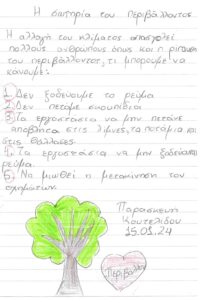 Η σωτηρία του Περιβάλλοντος
Η αλλαγή του κλίματος απασχολεί
πολλούς ανθρώπους όπως και η ρίπανση
του περιβάλλοντος, τι μπορούμε να
κάνουμε:
1. Δεν ξοδεύουμε το ρεύμα
2. Δεν πετάμε σκουπίδια
3. Τα εργοστάσια να μην πετάνε
απόβλητα στις λίμνες, τα ποτάμια και
στις θάλασσες.
4. Τα εργοστάσια να μην ξοδεύουν
ρεύμα.
5. Να μιωθεί η μετακίνηση των
οχημάτων.
Παρασκευή
Κουτελίδου
15.01.24
Περιβάλλον